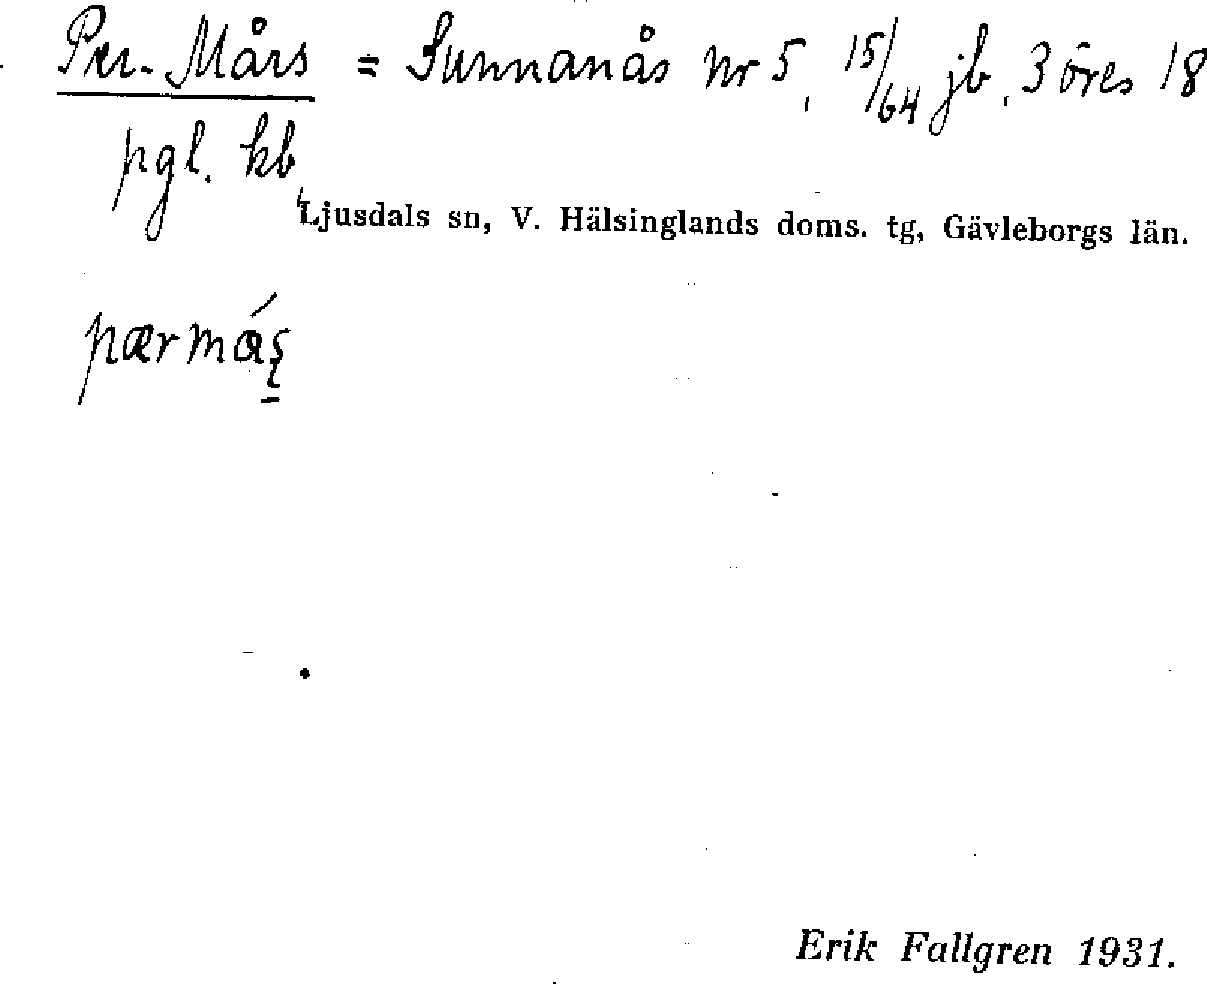 Per-Mårs = Sunnanås nr 5, 15/64 jb, 3 öres 18
pgl. kb,
Ljusdals sn, V. Hälsinglands doms. tg, Gävleborgs län.
pærmáş
Erik Fallgren 1931.